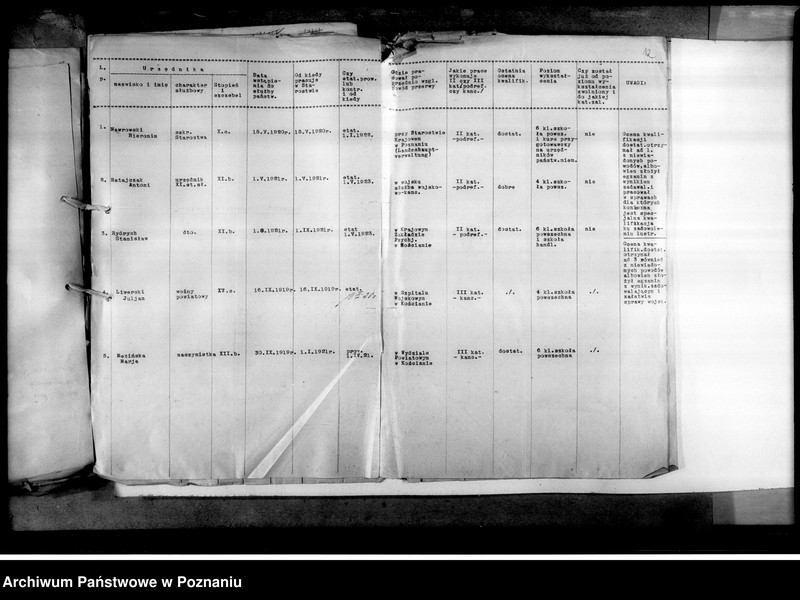 12
L.
p.
Urzędnika
nazwisko i imię
charakter
służbowy
Stopień
i
szczebel
Data
wstąpie-
nia do
służby
państw.
Od kiedy
pracuje
w Sta-
rostwie
Czy
etat.prow.
lub
kontr.
i od
kiedy
Gdzie pra-
cował po-
przednio wzgl.
powód przerwy
Jakie prace
wykonuje
II czy III
kat.podref.
czy kanc./
Ostatnia
ocena
kwalifik.
Poziom
wykształ-
cenia
Czy został
już od po-
ziomu wy-
kształcenia
zwolniony i
do jakiej
kat.zal.
UWAGI:
1.
Nawrowski
Hieronim
sekr.
Starostwa
X.c.
15.V.1920r.
15.V.1920r.
etat.
1.I.1922.
przy Starostwie
Krajowem
w Poznaniu
(Landeshaupt-
verwaltung)
II kat.
-podref.-
dostat.
6 kl.szko-
ła powsz.
i kurs przy-
gotowawczy
na urzęd-
ników
państw.niem.
nie
Ocena kwali-
fikacji
dostat.otrzy-
mał ad 1.
z niewia-
domych po-
wodów,albo-
wiem złożył
egzamin z
wynikiem
zadawal.i
pracował
w sprawach
dla których
konieczna
jest spec-
jalna kwa-
lifikacja
ku zadowole-
niu Instr.
2.
Ratajczak
Antoni
urzędnik
XI.st.sł.
XI.b.
1.V.1921r.
1.V.1921r.
etat.
1.V.1923.
w wojsku
służba wojsko-
wo-kanc.
II kat.
-podref.-
dobre
4 kl.szko-
ła powsz.
nie
3.
Rydzych
Stanisław
dto.
XI.b.
1.8.1921r.
1.IX.1921r.
etat
1.V.1923.
w Krajowym
Zakładzie
Psychj.
w Kościanie
II kat.
- podref.-
dostat.
6 kl.szkoła
powszechna
i szkoła
handl.
nie
Ocena kwa-
lifik.dostat.
otrzymał
ad 3 również
z niewiado-
mych powodów
albowiem zło-
żył egzamin
z wynik.zado-
walającym i
załatwia
sprawy wojsk.
4.
Liwerski
Juljan
woźny
powiatowy
XV.c.
16.IX.1919r.
16.IX.1919r.
etat.
w Szpitalu
Wojskowym
w Kościanie
III kat.
- kanc.-
./.
4 kl.szkoła
powszechna
./.
5.
Nezińska
Marja
maszynistka
XII.b.
30.IX.1919r.
1.I.1921r.
prow.
1.IV.21.
w Wydziale
Powiatowym
w Kościanie
III kat.
- kanc.-
dostat.
6 kl.szkoła
powszechna
./.
Archiwum Państwowe w Poznaniu